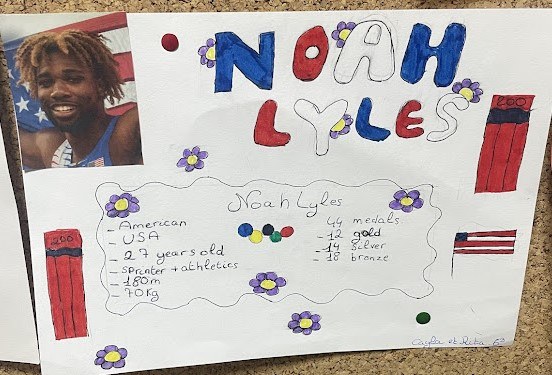 NOAH
LYLES
200
Noah Lyles
- American
- USA
- 27 years old
- sprinter + athletics
- 180m
- 70kg
44 medals
- 12 gold
- 14 silver
- 18 bronze
200
Cayla et